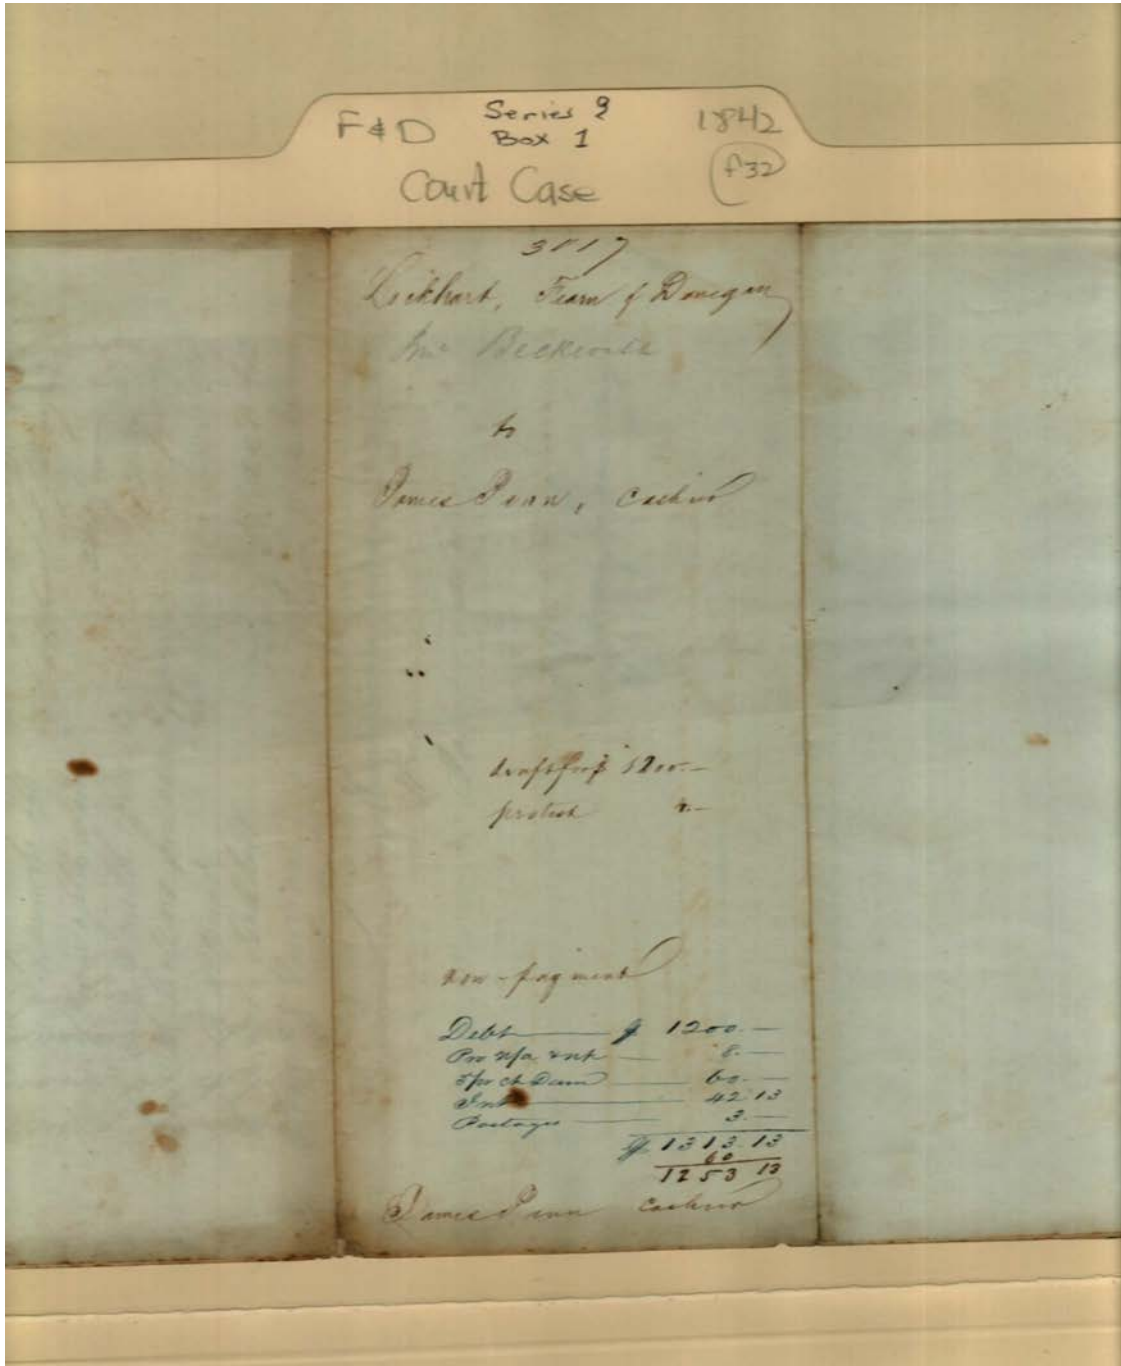 F & D Series 9 1842
Box 1 f32
Court Case
Lockhart, Fearn & Donegan
to
James Penn, Cashier
draft for $1200.—
protest 4.—
non-payment
Debt — $ 1200.—
Pro 8.—
5 pr ct Dam — 60.—
Int — 42 13
Postages — 3.—
$ 1313.13
60
1253 13
James Penn Cashier